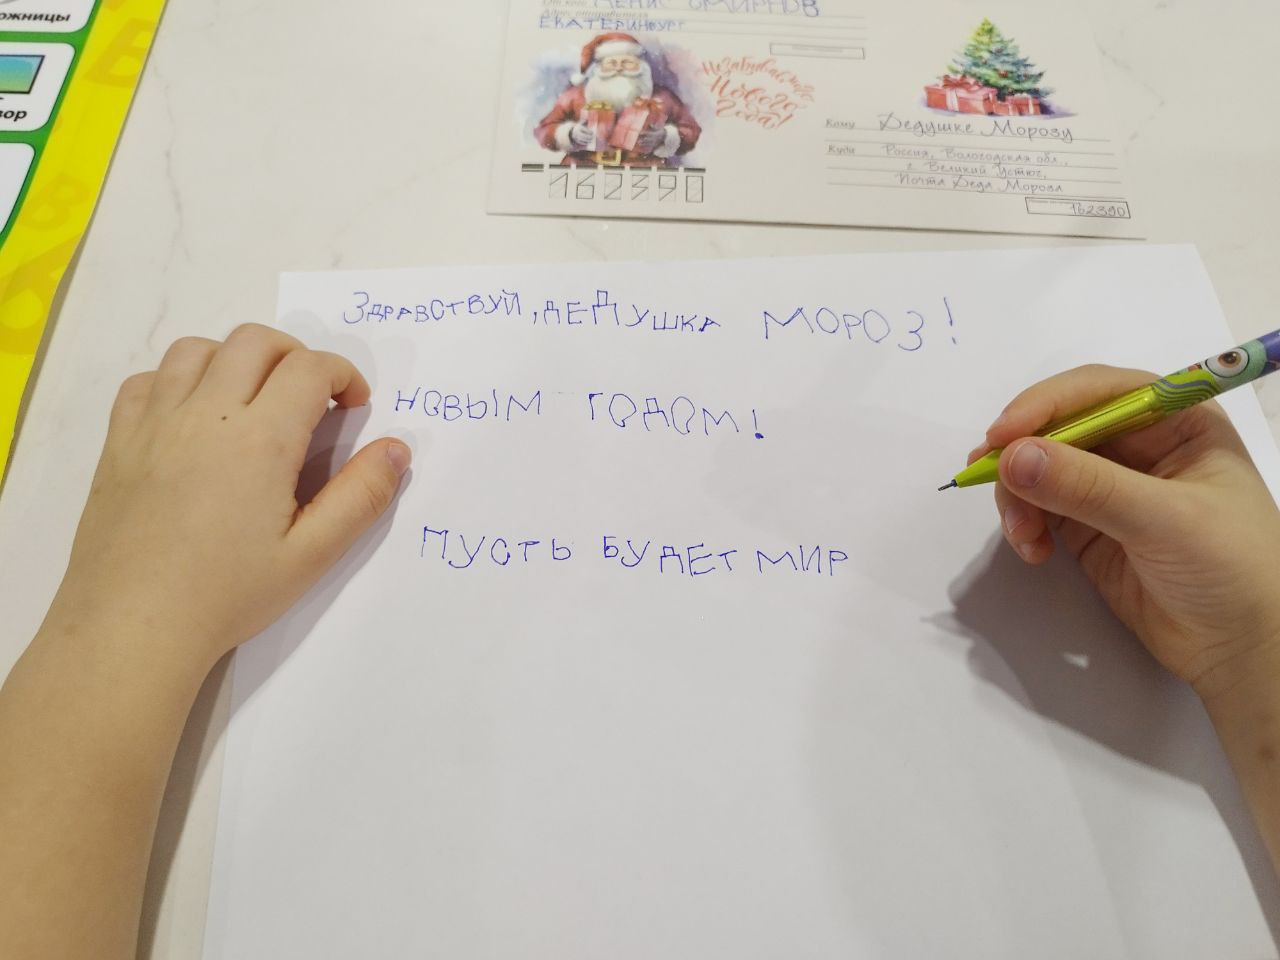 ножницы
вор
От кого ДЕНИС СМИРНОВ
Адрес отправителя
ЕКАТЕРИНБУРГ
Незабываемого
Нового
Года!
Кому Дедушке Морозу
Куда Россия, Вологодская обл.,
г. Великий Устюг,
Почта Деда Мороза
162390
162390
ЗДРАВСТВУЙ, ДЕДУШКА МОРОЗ!
НОВЫМ ГОДОМ!
ПУСТЬ БУДЕТ МИР